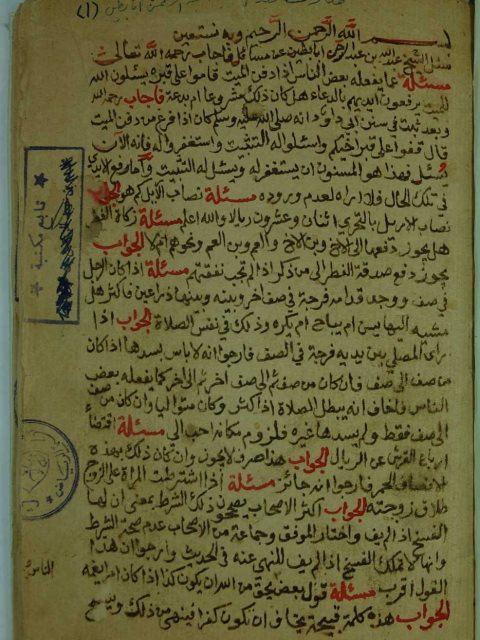 بسم الله الرحمن الرحيم وبه نستعين
سئل الشيخ عبد الله بن عبد الرحمن ابابطين عن مسائل فاجاب رحمه الله تعالى
مسئلة عما يفعله بعض الناس اذا دفن الميت قاموا على قبره يسئلون الله
للميت يرفعون ايديهم بالدعاء هل كان ذلك مشروعا ام بدعة فاجاب رحمه الله
وبعد ثبت في سنن ابي داود انه صلى الله عليه وسلم كان اذا فرغ من دفن الميت
قال قفوا على قبر اخيكم واسئلوا له التثبيت واستغفروا له فانه الآن
يسئل فهذا هو المسنون ان يستغفر له ويسئل له التثبيت واما رفع الايدي
في تلك الحال فلا اراه لعدم وروده مسئلة نصاب الابل كم هو الجواب
نصاب الريال بالتحري اثنان وعشرون ريالا والله اعلم مسئلة زكاة الفطر
هل يجوز دفعها الى الاخ وبن الاخ والعم وبن العم ونحوهم ام لا الجواب
يجوز دفع صدقة الفطر الى من ذكر اذا لم تجب نفقتهم مسئلة اذا كان الرجل
في صف ووجد قدامه فرجة في صف اخر وبينه وبينها ذراعين فاكثر هل
مشيه اليها يسن ام يباح ام يكره وذلك في نفس الصلاة الجواب اذا
راى المصلي بين يديه فرجة في الصف فارجوا انه لا باس يسدها اذا كان
من صف الى صف فان كان من صف ثم الى صف اخر ثم الى اخر كما يفعله بعض
الناس فاخاف انه يبطل الصلاة اذا كثر وكان متواليا وان كان من صف
الى صف فقط ولم يسدها غيره فلزوم مكانه احب الي مسئلة اقتضاء
ارباع القرش عن الريال الجواب هذا صرف ولا يجوز وان كان ذلك بهذه
الانصاف الحمر فارجوا انه جائز مسئلة اذا اشترطت المراة على الزوج
طلاق زوجته الجواب اكثر الاصحاب يصححون ذلك الشرط بمعنى ان لها
الفسخ اذا لم يف واختار الموفق وجماعة من الاصحاب عدم صحة الشرط
وانها لا تملك الفسخ اذا لم يف للنهي عنه في الحديث وارجوا ان هذا
القول اقرب مسئلة قول بعض بحق من الله ان يكون كذا اذا كان امر ايعمه
الناس
الجواب هذه كلمة قبيحة يخاف ان تكون كفرا فينهى من ذلك